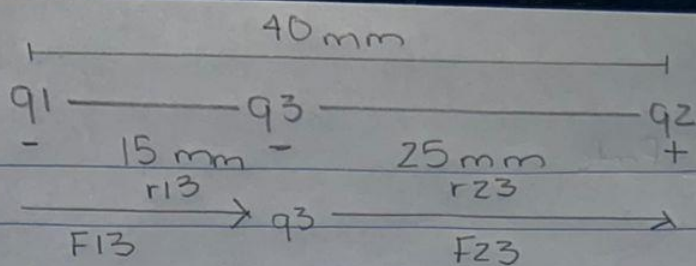 40mm
q1 q3 q2
- 15 mm - 25mm +
r13 r23
q3
F13 F23